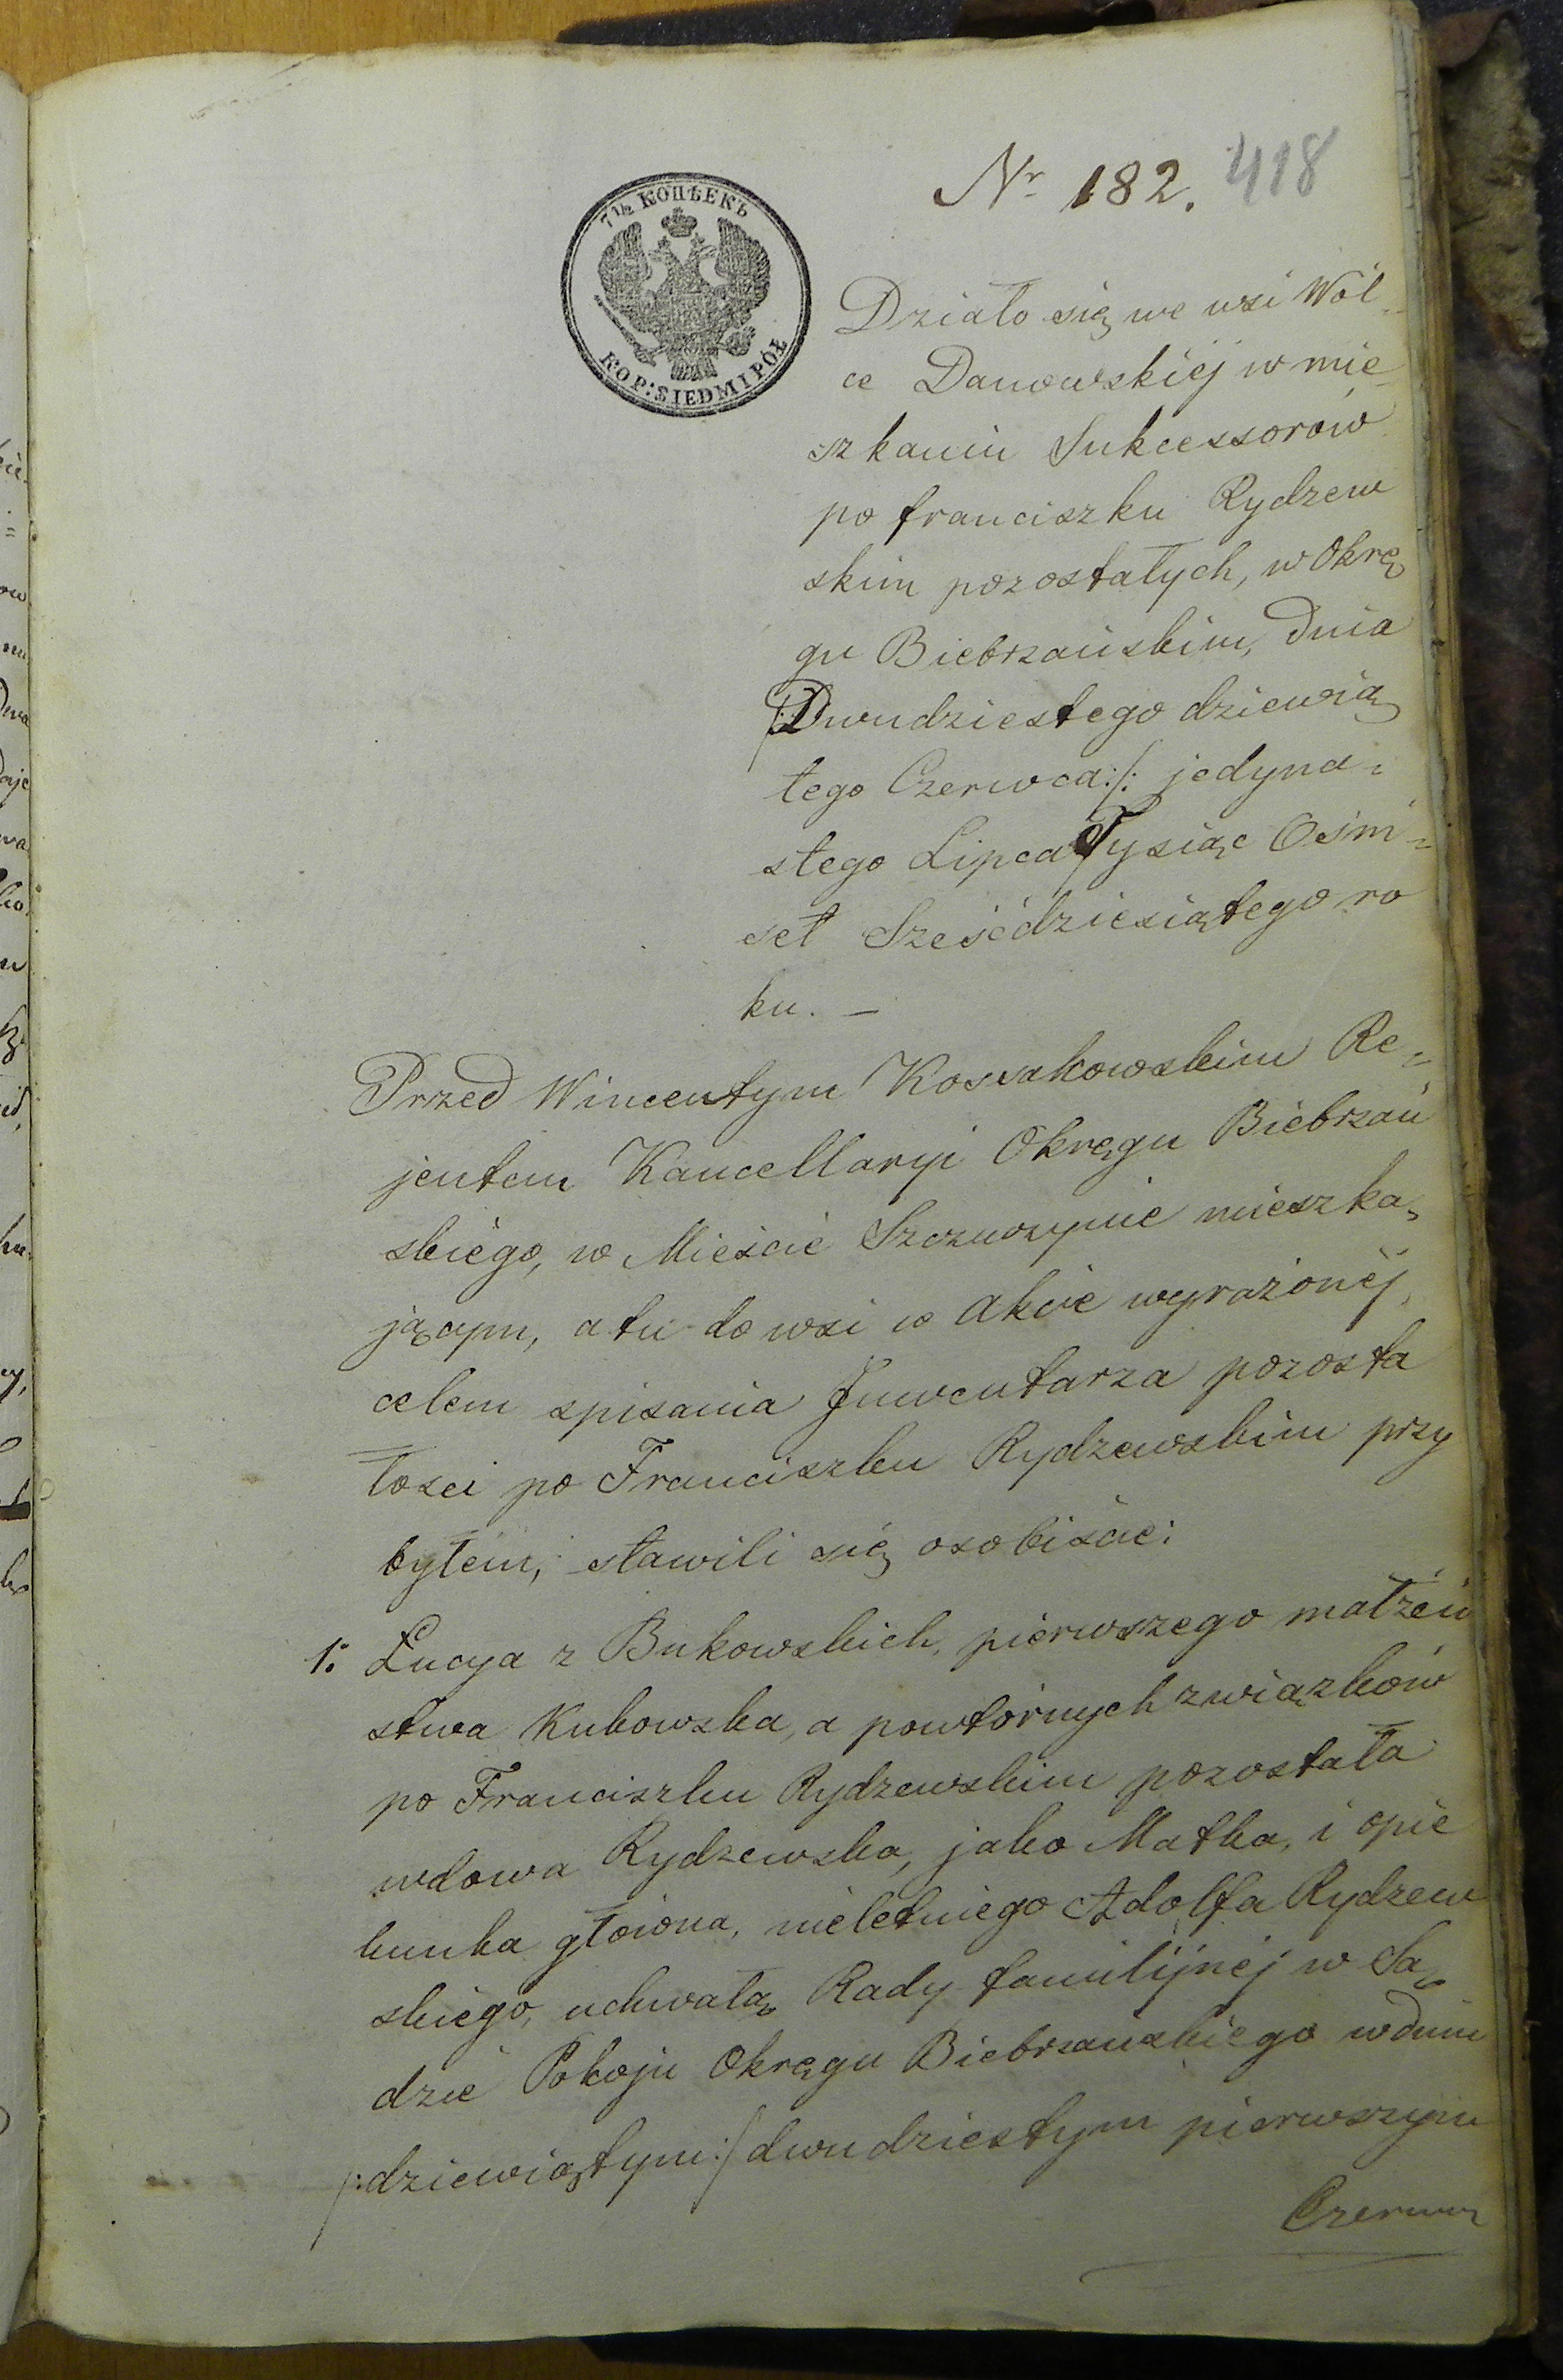 Nr 182. 418
7½ КОПѢЕКЪ
KOP: SIEDM I PÓŁ
Działo się we wsi Wól-
ce Danowskiéj w mie-
szkaniu Sukcessorów
po franciszku Rydzew
skim pozostałych, w Okrę
gu Biebrzańskim, dnia
/:Dwudziestego dziewią
tego Czerwca:/: jedyna=
stego Lipca Tysiąc Ośm=
set Sześćdziesiątego ro
ku. —
Przed Wincentym Kossakowskim Re=
jentem Kancellaryi Okręgu Biebrzań
skiégo, w Mieście Szczuczynie mieszka-
jącym, a tu do wsi w akcie wyrażonéj,
celem spisania Inwentarza pozosta
łości po Franciszku Rydzewskim przy
byłém, stawili się osobiście:
1. Łucya z Bukowskich, pierwszego małżeń
stwa Kubowska, a powtórnych związków
po Franciszku Rydzewskim pozostała
wdowa Rydzewska, jako Matka, i opie
kunka główna, nieletniego Adolfa Rydzew
skiégo, uchwałą Rady familijnéj w Są-
dzie Pokoju Okręgu Biebrzańskiego w dniu
/:dziewiątym:/ dwudziestym pierwszym
Czerwca